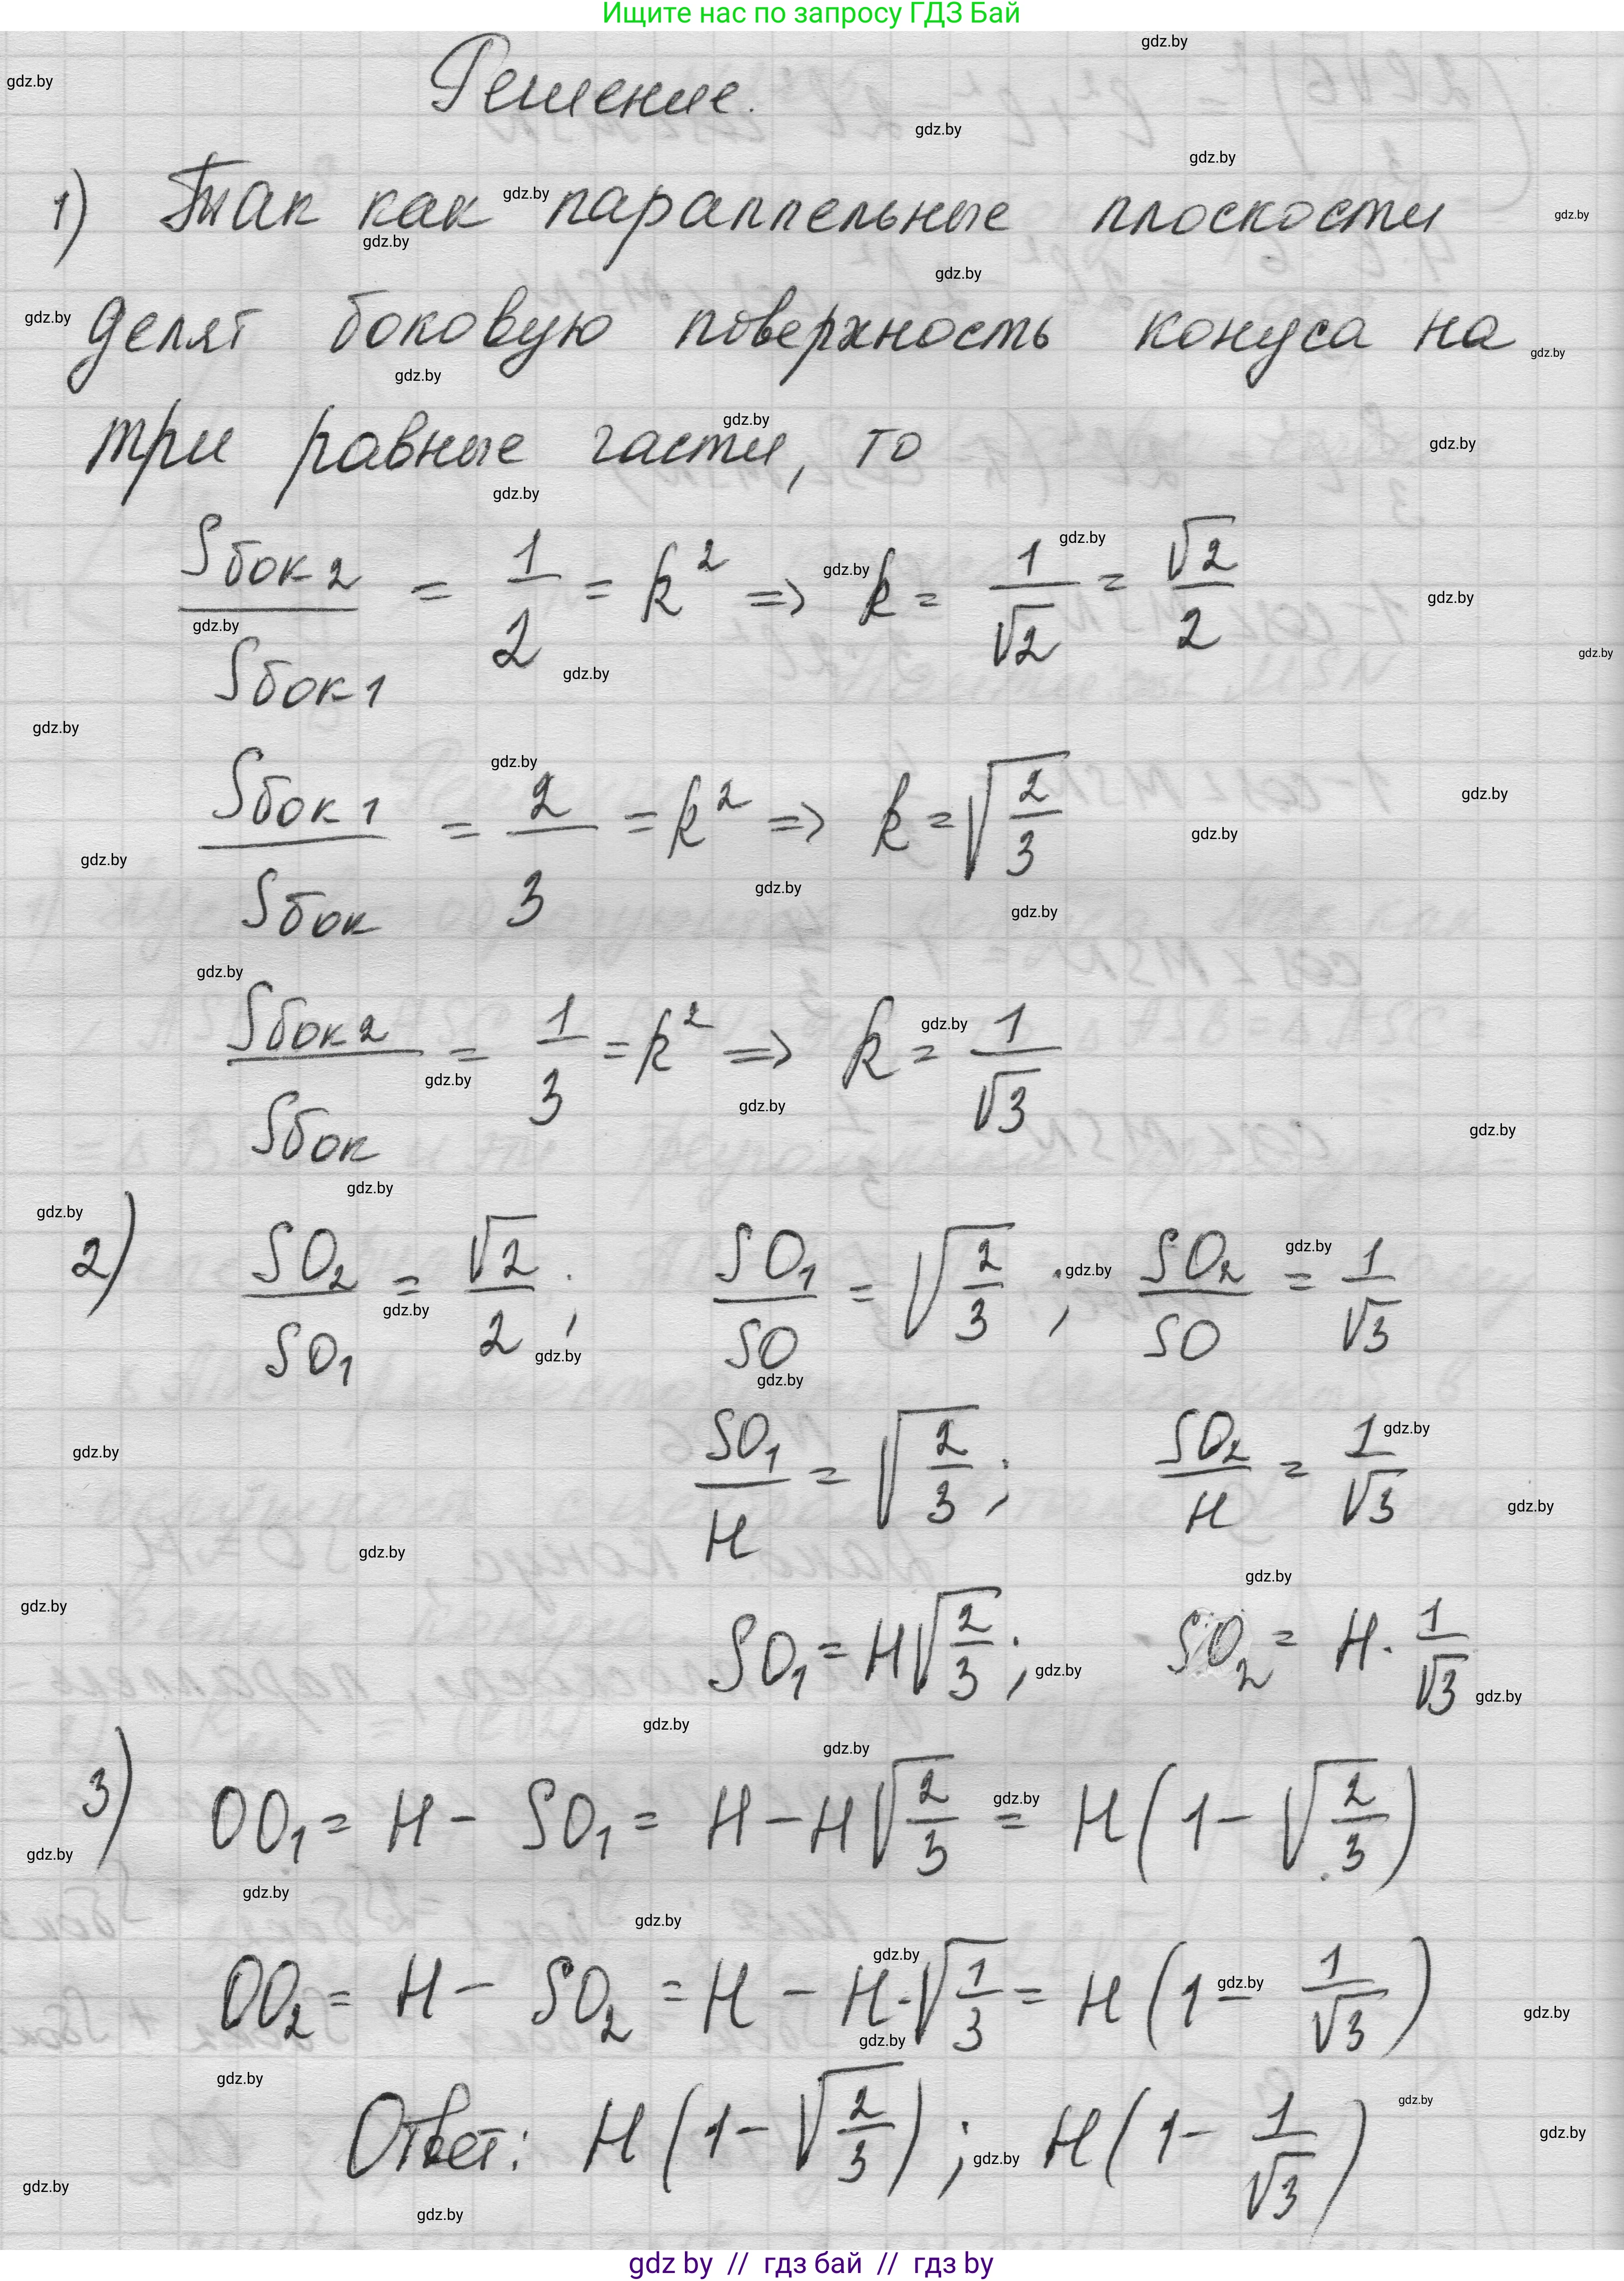 Ищите нас по запросу ГДЗ Бай
Решение.
1) Так как параллельные плоскости
делят боковую поверхность конуса на
три равные части, то
Sбок2/Sбок1 = 1/2 = k² => k = 1/√2 = √2/2
Sбок1/Sбок = 2/3 = k² => k = √(2/3)
Sбок2/Sбок = 1/3 = k² => k = 1/√3
2) SO₂/SO₁ = √2/2; SO₁/SO = √(2/3); SO₂/SO = 1/√3
SO₁/H = √(2/3); SO₂/H = 1/√3
SO₁ = H√(2/3); SO₂ = H · 1/√3
3) OO₁ = H - SO₁ = H - H√(2/3) = H(1 - √(2/3))
OO₂ = H - SO₂ = H - H·√(1/3) = H(1 - 1/√3)
Ответ: H(1 - √(2/3)); H(1 - 1/√3)
gdz by // гдз бай // гдз by